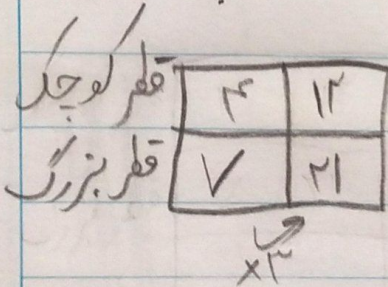 قطر کوچک ۴ ۱۲
قطر بزرگ ۷ ۲۱
×۳